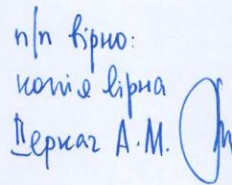 п/п вірно:
копія вірна
Деркач А.М.